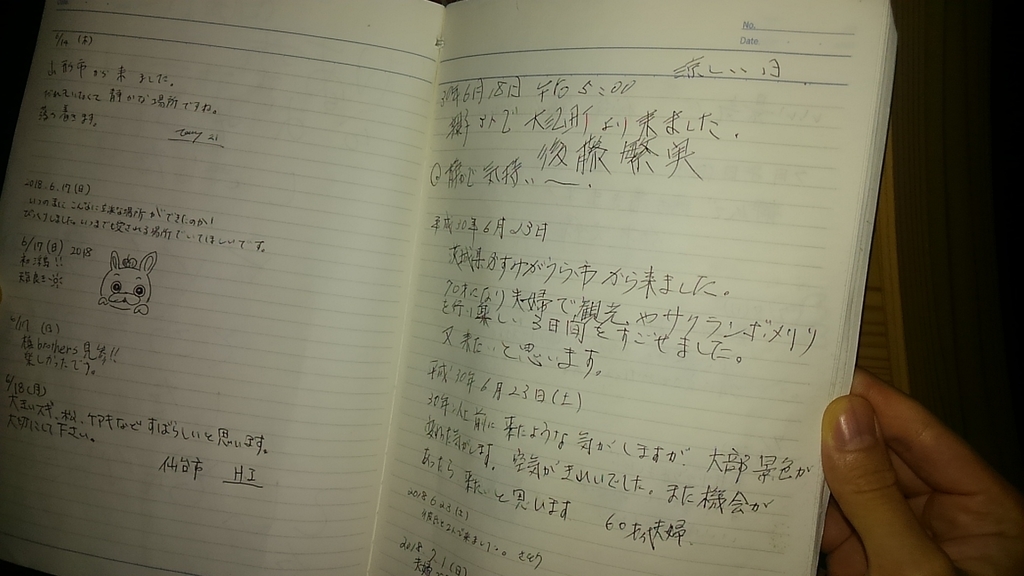 6/14 (木)
山形市から来ました。
静かな場所ですね。
落ち着きます。
2018.6.17(日)
いつの間にこんなに立派な場所ができたのか!
びっくりしました。いつまでも愛される場所でいてほしいです。
6/17(日) 2018
6/17 (日)
brothers 見参!!
楽しかったです。
6/18(月)
大きいスギ、松、ケアキなどすばらしいと思います。
大切にして下さい。
仙台市 H.I
No.
Date
涼しい日
30年6月18日 午后5:00
より来ました.
後藤繁実
気持いい〜.
平成30年6月23日
茨城県かすみがうら市から来ました。
70才になり夫婦で観光やサクランボメリリ
を行い楽しい3日間をすごせました。
又来たいと思います。
平成30年6月23日(土)
30年以上前に来たような気がしますが 大部景色が
変わった気がします。空気がきれいでした。また機会が
あったら来たいと思います 60才代夫婦
2018.6.23(土)
来ました。